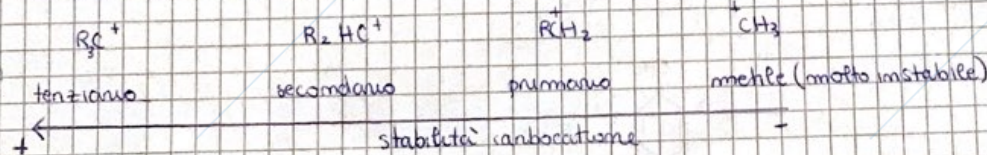 R₃C⁺ R₂HC⁺ RC⁺H₂ ⁺CH₃
terziario secondario primario metile (molto instabile)
+ ← −
stabilità carbocatione